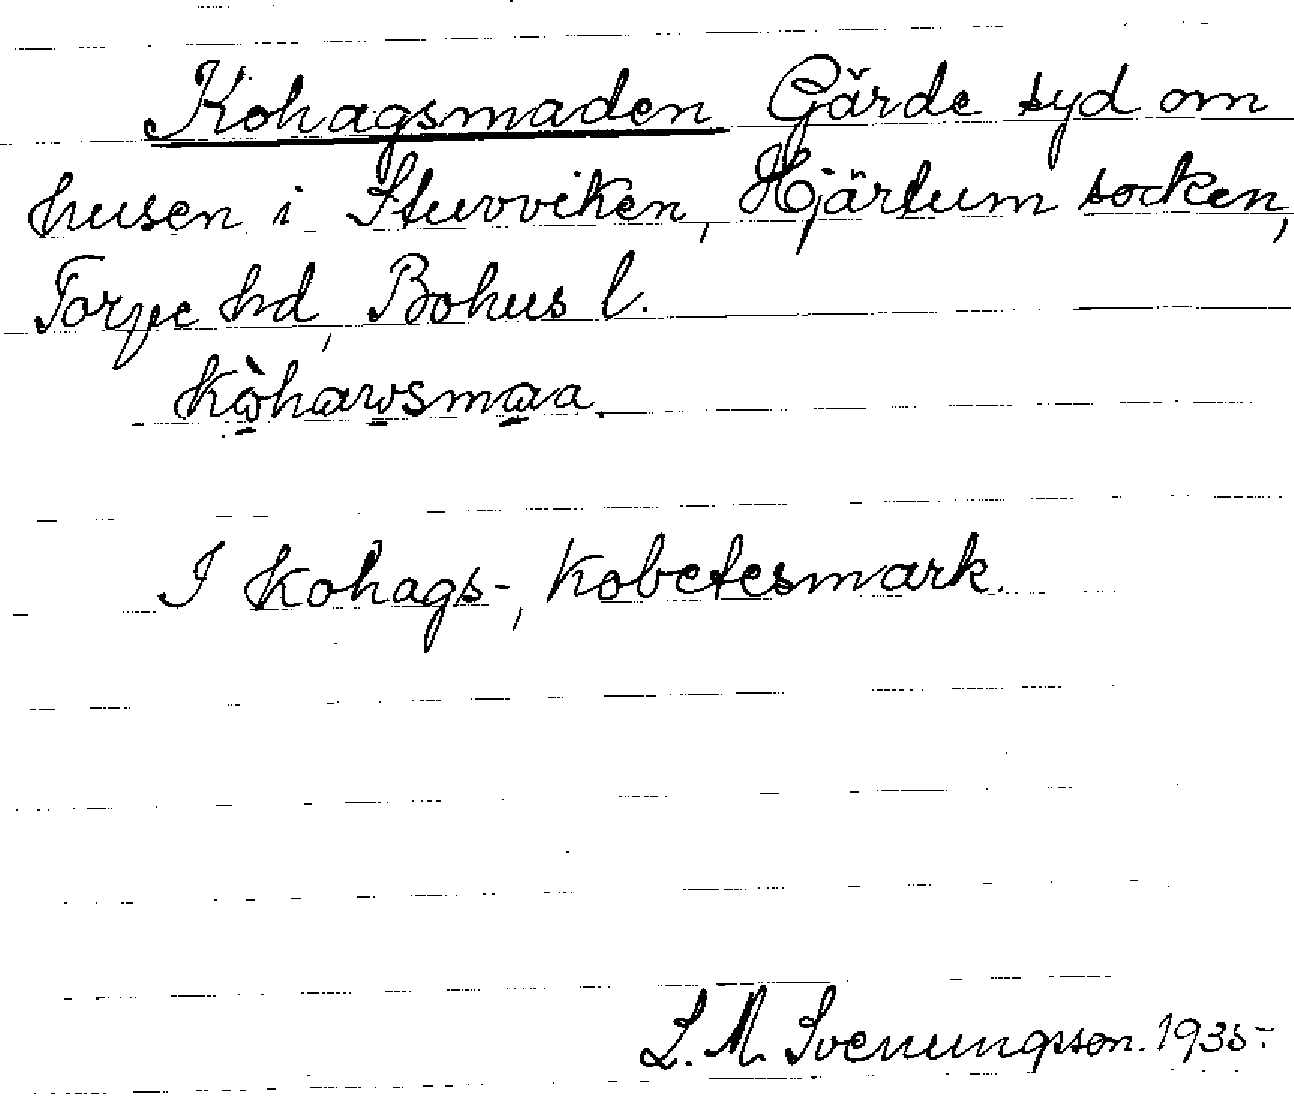 Kohagsmaden Gärde syd om
husen i Stuvviken, Hjärtum socken,
Torpe hd, Bohus l.
kòhawsmaa.
I kohags-, kobetesmark.
L. M. Svenungsson. 1935-